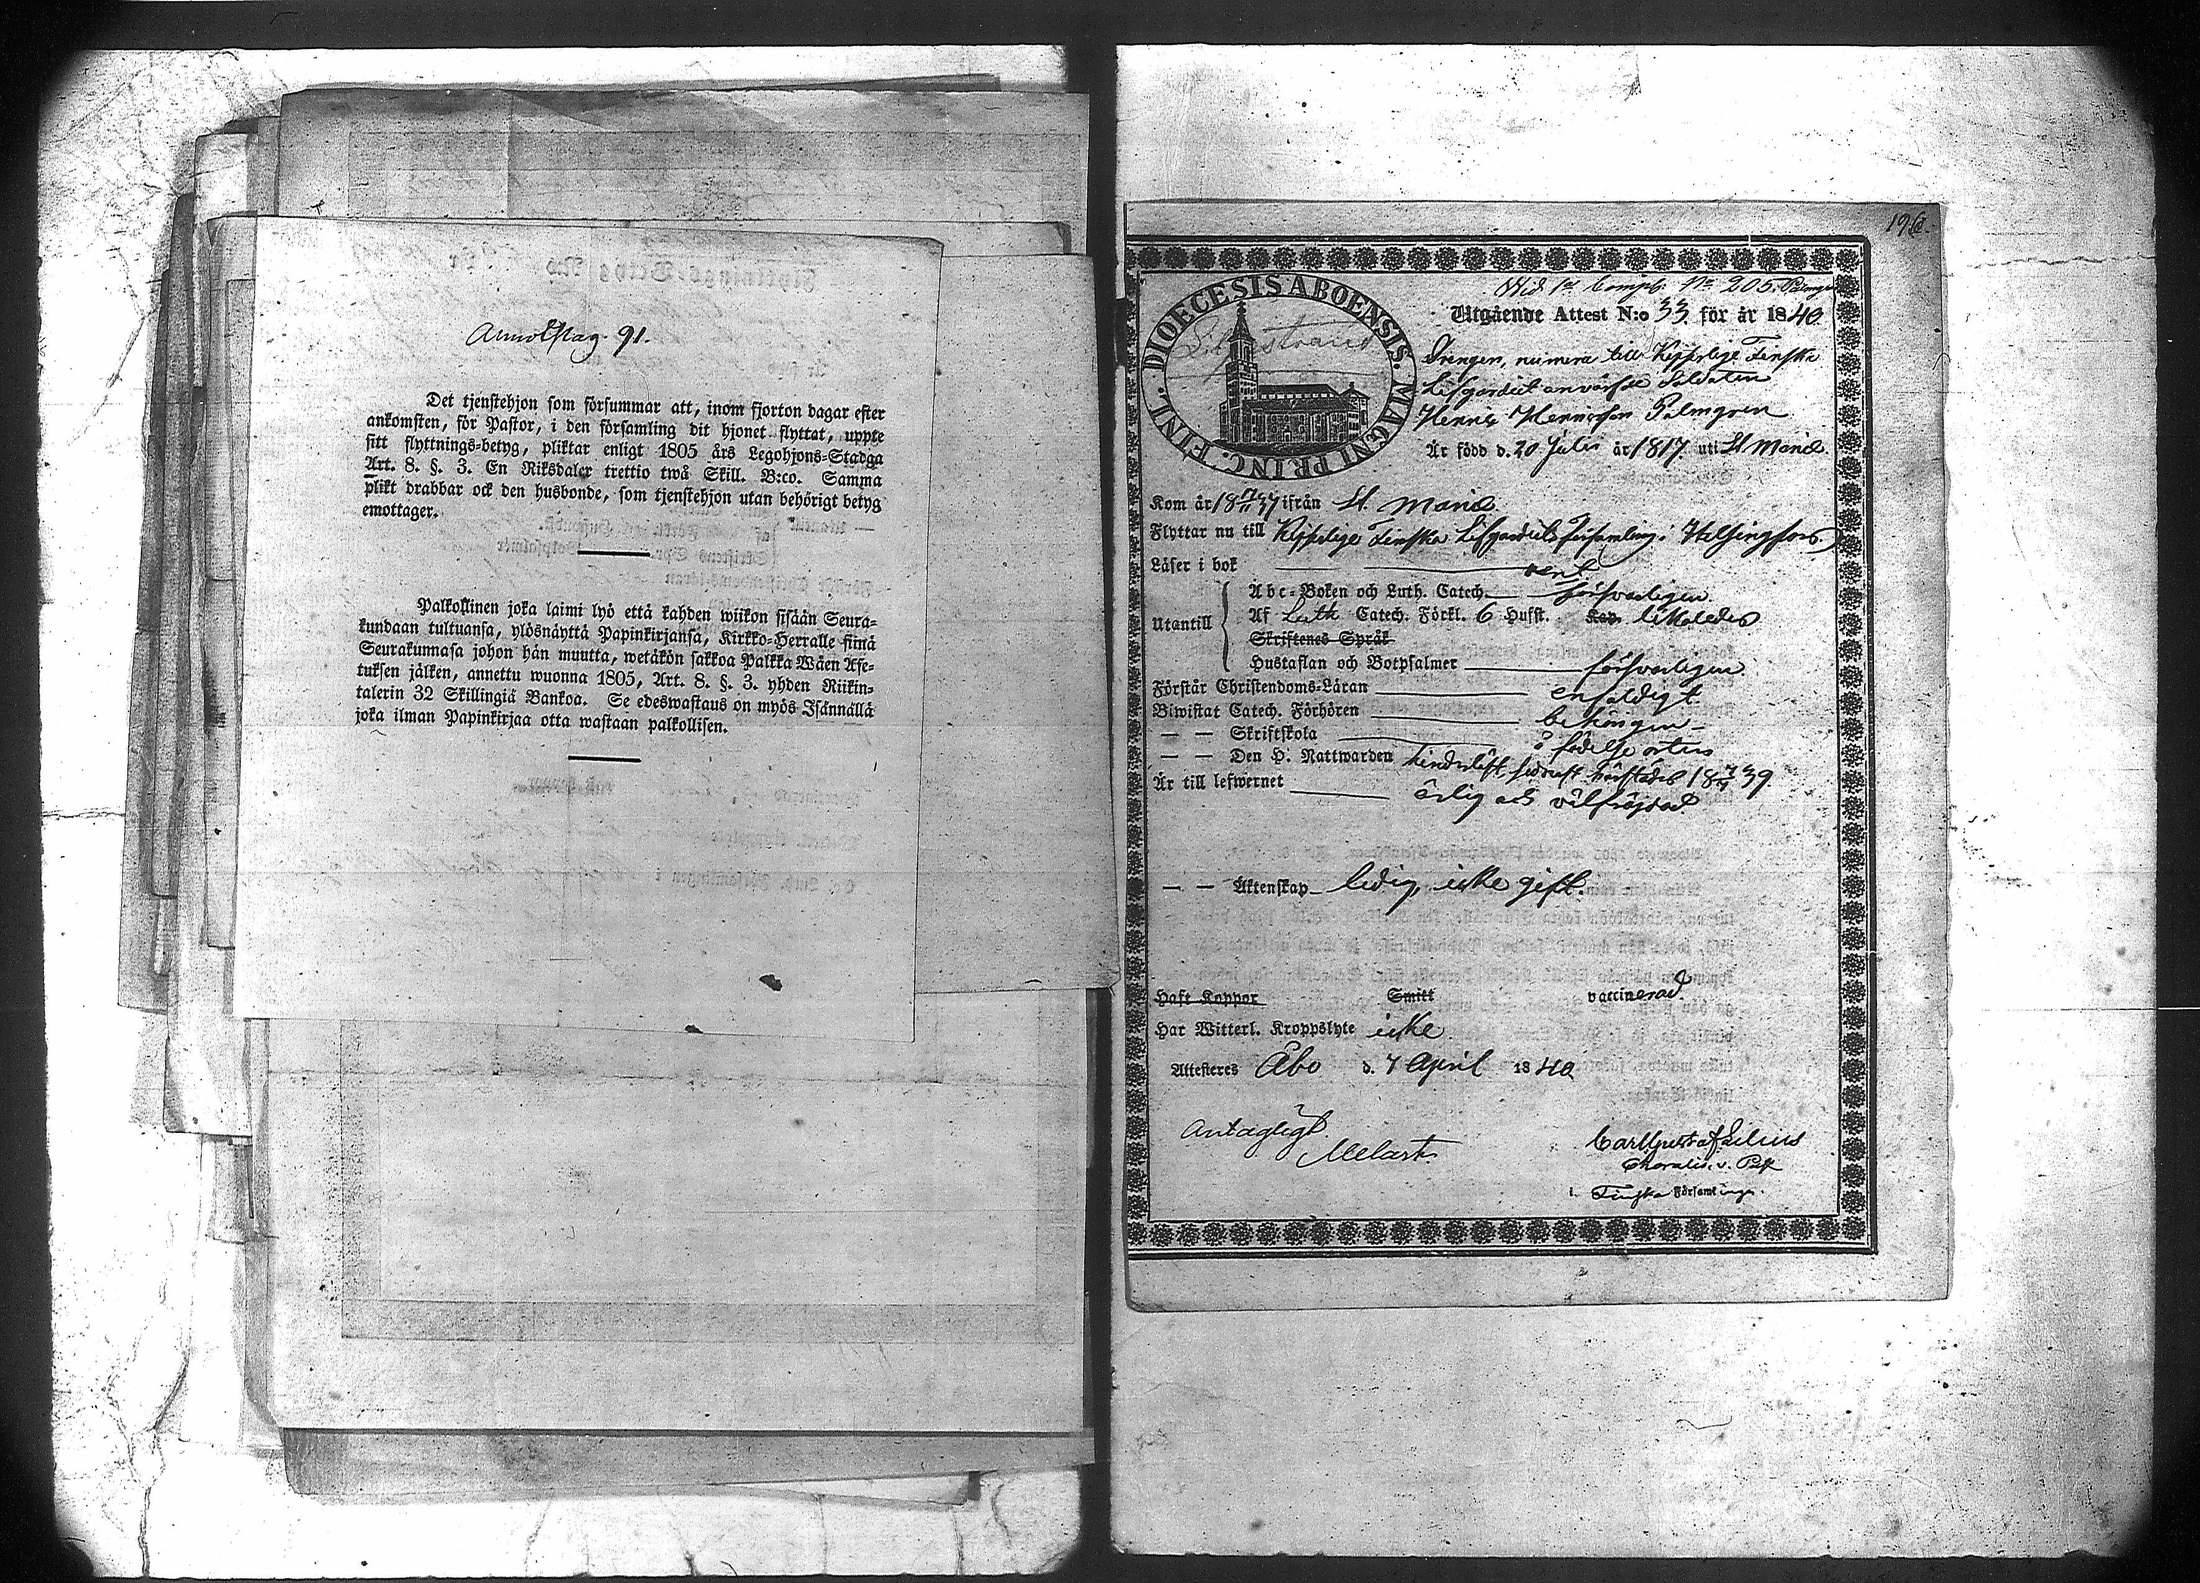 91.
Det tjenstehjon som försummar att, inom fjorton dagar efter
ankomsten, för Pastor, i den församling dit hjonet flyttat, uppte
sitt flyttnings-betyg, pliktar enligt 1805 års Legohjons-Stadga
Art. 8. §. 3. En Riksdaler trettio twå Skill. B:co. Samma
plikt drabbar ock den husbonde, som tjenstehjon utan behörigt betyg
emottager.
Palkollinen joka laimi lyö että kahden wiikon sisään Seura-
kundaan tultuansa, ylösnäyttä Papinkirjansa, Kirkko-Herralle siinä
Seurakunnasa johon hän muutta, wetäkön sakkoa Palkka Wäen Ase-
tuksen jälken, annettu wuonna 1805, Art. 8. §. 3. yhden Riikin-
talerin 32 Skillingiä Bankoa. Se edeswastaus on myös Isännällä
joka ilman Papinkirjaa otta wastaan palkollisen.
Wid 1st Comp. No 205.
DIOECESIS ABOENSIS. MAGNI PRINC. FINL.
Utgående Attest N:o 33. för år 1840.
Drengen, numera till Kejserlige Finska
Lifgardiet anvärfde Soldaten
Henric Henricsson Palmgren
Är född d. 20 Julii år 1817. uti St Marie
Kom år 1837 ifrån St. Marie.
Flyttar nu till Kejserlige Finska Lifgardiets Församling i Helsingfors.
Läser i bok rent
Abc-Boken och Luth. Catech. försvarligen.
Utantill Af Luth. Catech. Förkl. 6 Hufst. Kap. likaledes
Skriftenes Språk
Hustaflan och Botpsalmer försvarligen.
Förstår Christendoms-Läran enfaldigt
Biwistat Catech. Förhören behörigen
— — Skriftskola å födelse orten
— — Den H. Nattwarden 1839.
Är till lefwernet ärlig och välfrejdad.
— — Äktenskap ledig, icke gift.
Haft Koppor Smitt vaccinerad.
Har Witterl. Kroppslyte icke.
Attesteres Åbo d. 7 April 1840
Antagligt.
Melart.
Carl Gustaf
i. Finska Församlingen.